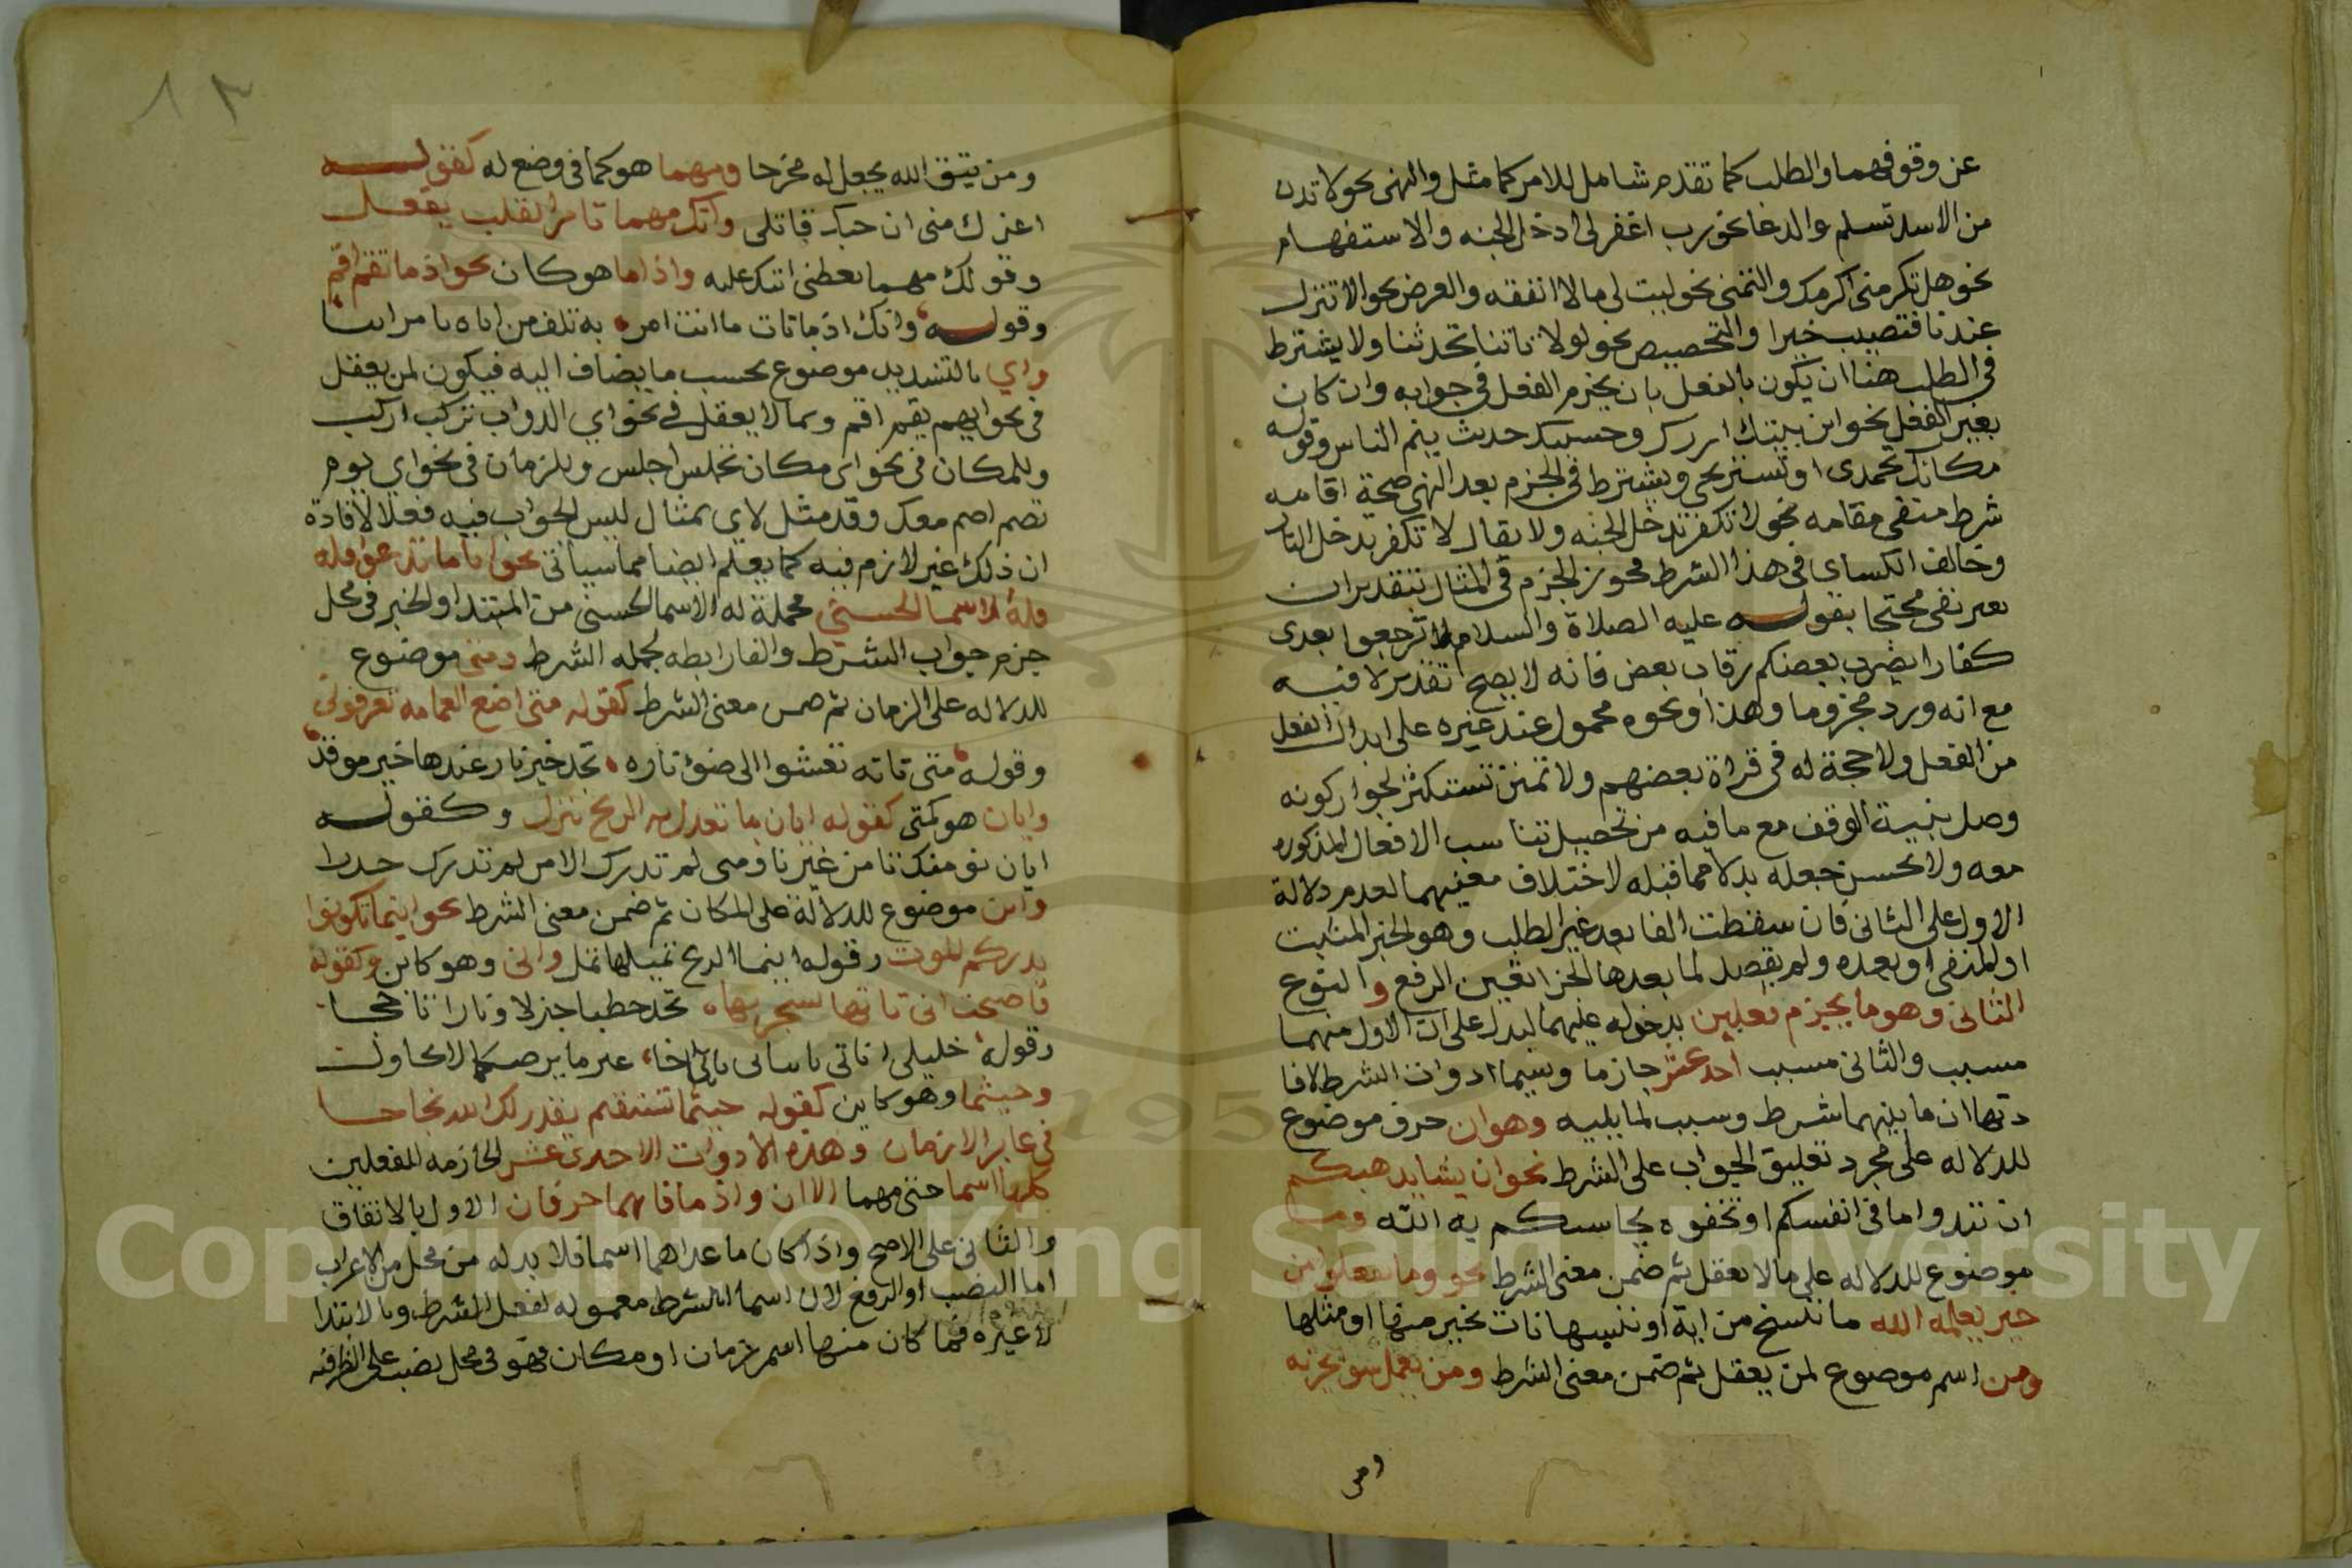 عن وقوفهما والطلب كما تقدم شامل للامر كما مثل والنهى نحو لا تدن
من الاسد تسلم والدعا نحو رب اغفر لى ادخل الجنه والاستفهام
نحو هل تكرمنى اكرمك والتمنى نحو ليت لى مالا انفقه والعرض نحو الا تنزل
عندنا فتصيب خيرا والتحضيض نحو لولا تاتنا تحدثنا ولا يشترط
فى الطلب هنا ان يكون بالفعل بان يجزم الفعل فى جوابه وان كان
بغير الفعل نحو اين بيتك ازرك وحسبك حديث ينم الناس وقوله
مكانك تحمدى او تستريحى ويشترط فى الجزم بعد النهى صحة اقامه
شرط منفى مقامه نحو لا تكفر تدخل الجنه ولا يقال لا تكفر تدخل النار
وخالف الكساى فى هذا الشرط فجوز الجزم فى المثال بتقدير ان
بغير نفى محتجا بقوله عليه الصلاة والسلام لا ترجعوا بعدى
كفارا يضرب بعضكم رقاب بعض فانه لا يصح تقدير لا فيه
مع انه ورد مجزوما وهذا ونحوه محمول عند غيره على ابدال الفعل
من الفعل ولا حجة له فى قراة بعضهم ولا تمنن تستكثر لجواز كونه
وصل بنية الوقف مع ما فيه من تحصيل تناسب الافعال المذكوره
معه ولا يحسن جعله بدلا مما قبله لاختلاف معنيهما لعدم دلالة
الاول على الثانى فان سقطت الفا بعد غير الطلب وهو الخبر المثبت
او المنفى او بعده ولم يقصد لما بعدها الجزا تعين الرفع والنوع
الثانى وهو ما يجزم فعلين بدخوله عليهما ليدل على ان الاول منهما
سبب والثانى مسبب احد عشر جازما وسيما ادوات الشرط لافا
دتها ان ما يليهما شرط وسبب لما يليه وهو ان حرف موضوع
للدلاله على مجرد تعليق الجواب على الشرط نحو ان يشا يذهبكم
ان تبدوا ما فى انفسكم او تخفوه يحاسبكم به الله وما
موضوع للدلاله على ما لا يعقل ثم ضمن معنى الشرط نحو وما تفعلوا من
خير يعلمه الله ما ننسخ من اية او ننسها نات بخير منها او مثلها
ومن اسم موضوع لمن يعقل ثم ضمن معنى الشرط ومن يعمل سو يجز به
ومن
٨٢
ومن يتق الله يجعل له مخرجا ومهما هو كما فى وضع له كقوله
اغرك منى ان حبك قاتلى وانك مهما تامر القلب يفعل
وقولك مهما تعطنى اتكل عليه واذا ما هو كان نحو اذ ما تقم اقم
وقوله وانك اذ ما تات ما انت امر به تلف من اياه تامر اتيا
واي بالتشديد موضوع بحسب ما يضاف اليه فيكون لمن يعقل
فى نحو ايهم يقم اقم ولما لا يعقل فى نحو اي الدواب تركب اركب
وللمكان فى نحو اى مكان تجلس اجلس وللزمان فى نحو اي يوم
تصم اصم معك وقد مثل لاى بمثال ليس الجواب فيه فعلا لافادة
ان ذلك غير لازم فيه كما يعلم ايضا مما سياتى نحو ايا ما تدعوا فله
فله الاسما الحسنى فجملة له الاسما الحسنى من المبتدا والخبر فى محل
جزم جواب الشرط والفا رابطه لجمله الشرط ومتى موضوع
للدلاله على الزمان ثم ضمن معنى الشرط كقوله متى اضع العمامه تعرفونى
وقوله متى تاته تعشوا الى ضوء ناره تجد خير نار عندها خير موقد
وايان هو كمتى كقوله ايان ما تعدل به الريح تنزل وكقوله
ايان نؤمنك تامن غيرنا ومتى لم تدرك الامن لم تدرك حذرا
واين موضوع للدلالة على المكان ثم ضمن معنى الشرط نحو اينما تكونوا
يدرككم الموت وقوله اينما الريح تميلها تمل وانى وهو كاين وكقوله
فاصبحت انى تاتها تستجر بها تجد حطبا جزلا ونارا تاججا
وقوله خليلى انى تاتيانى تاتيا اخا غير ما يرضيكما لا يحاول
وحيثما وهو كاين كقوله حيثما تستقم يقدر لك الله نجاحا
فى غابر الازمان وهذه الادوات الاحدى عشر الجازمه للفعلين
كلها اسما حتى مهما الا ان واذ ما فانهما حرفان الاول بالاتفاق
والثانى على الاصح واذا كان ما عداهما اسما فلا بد له من محل من الاعراب
اما النصب او الرفع لان اسما الشرط معموله لفعل الشرط وبالابتدا
لا غيره فما كان منها اسم زمان او مكان فهو فى محل نصب على الظرفيه
Copyright © King Saud University
195